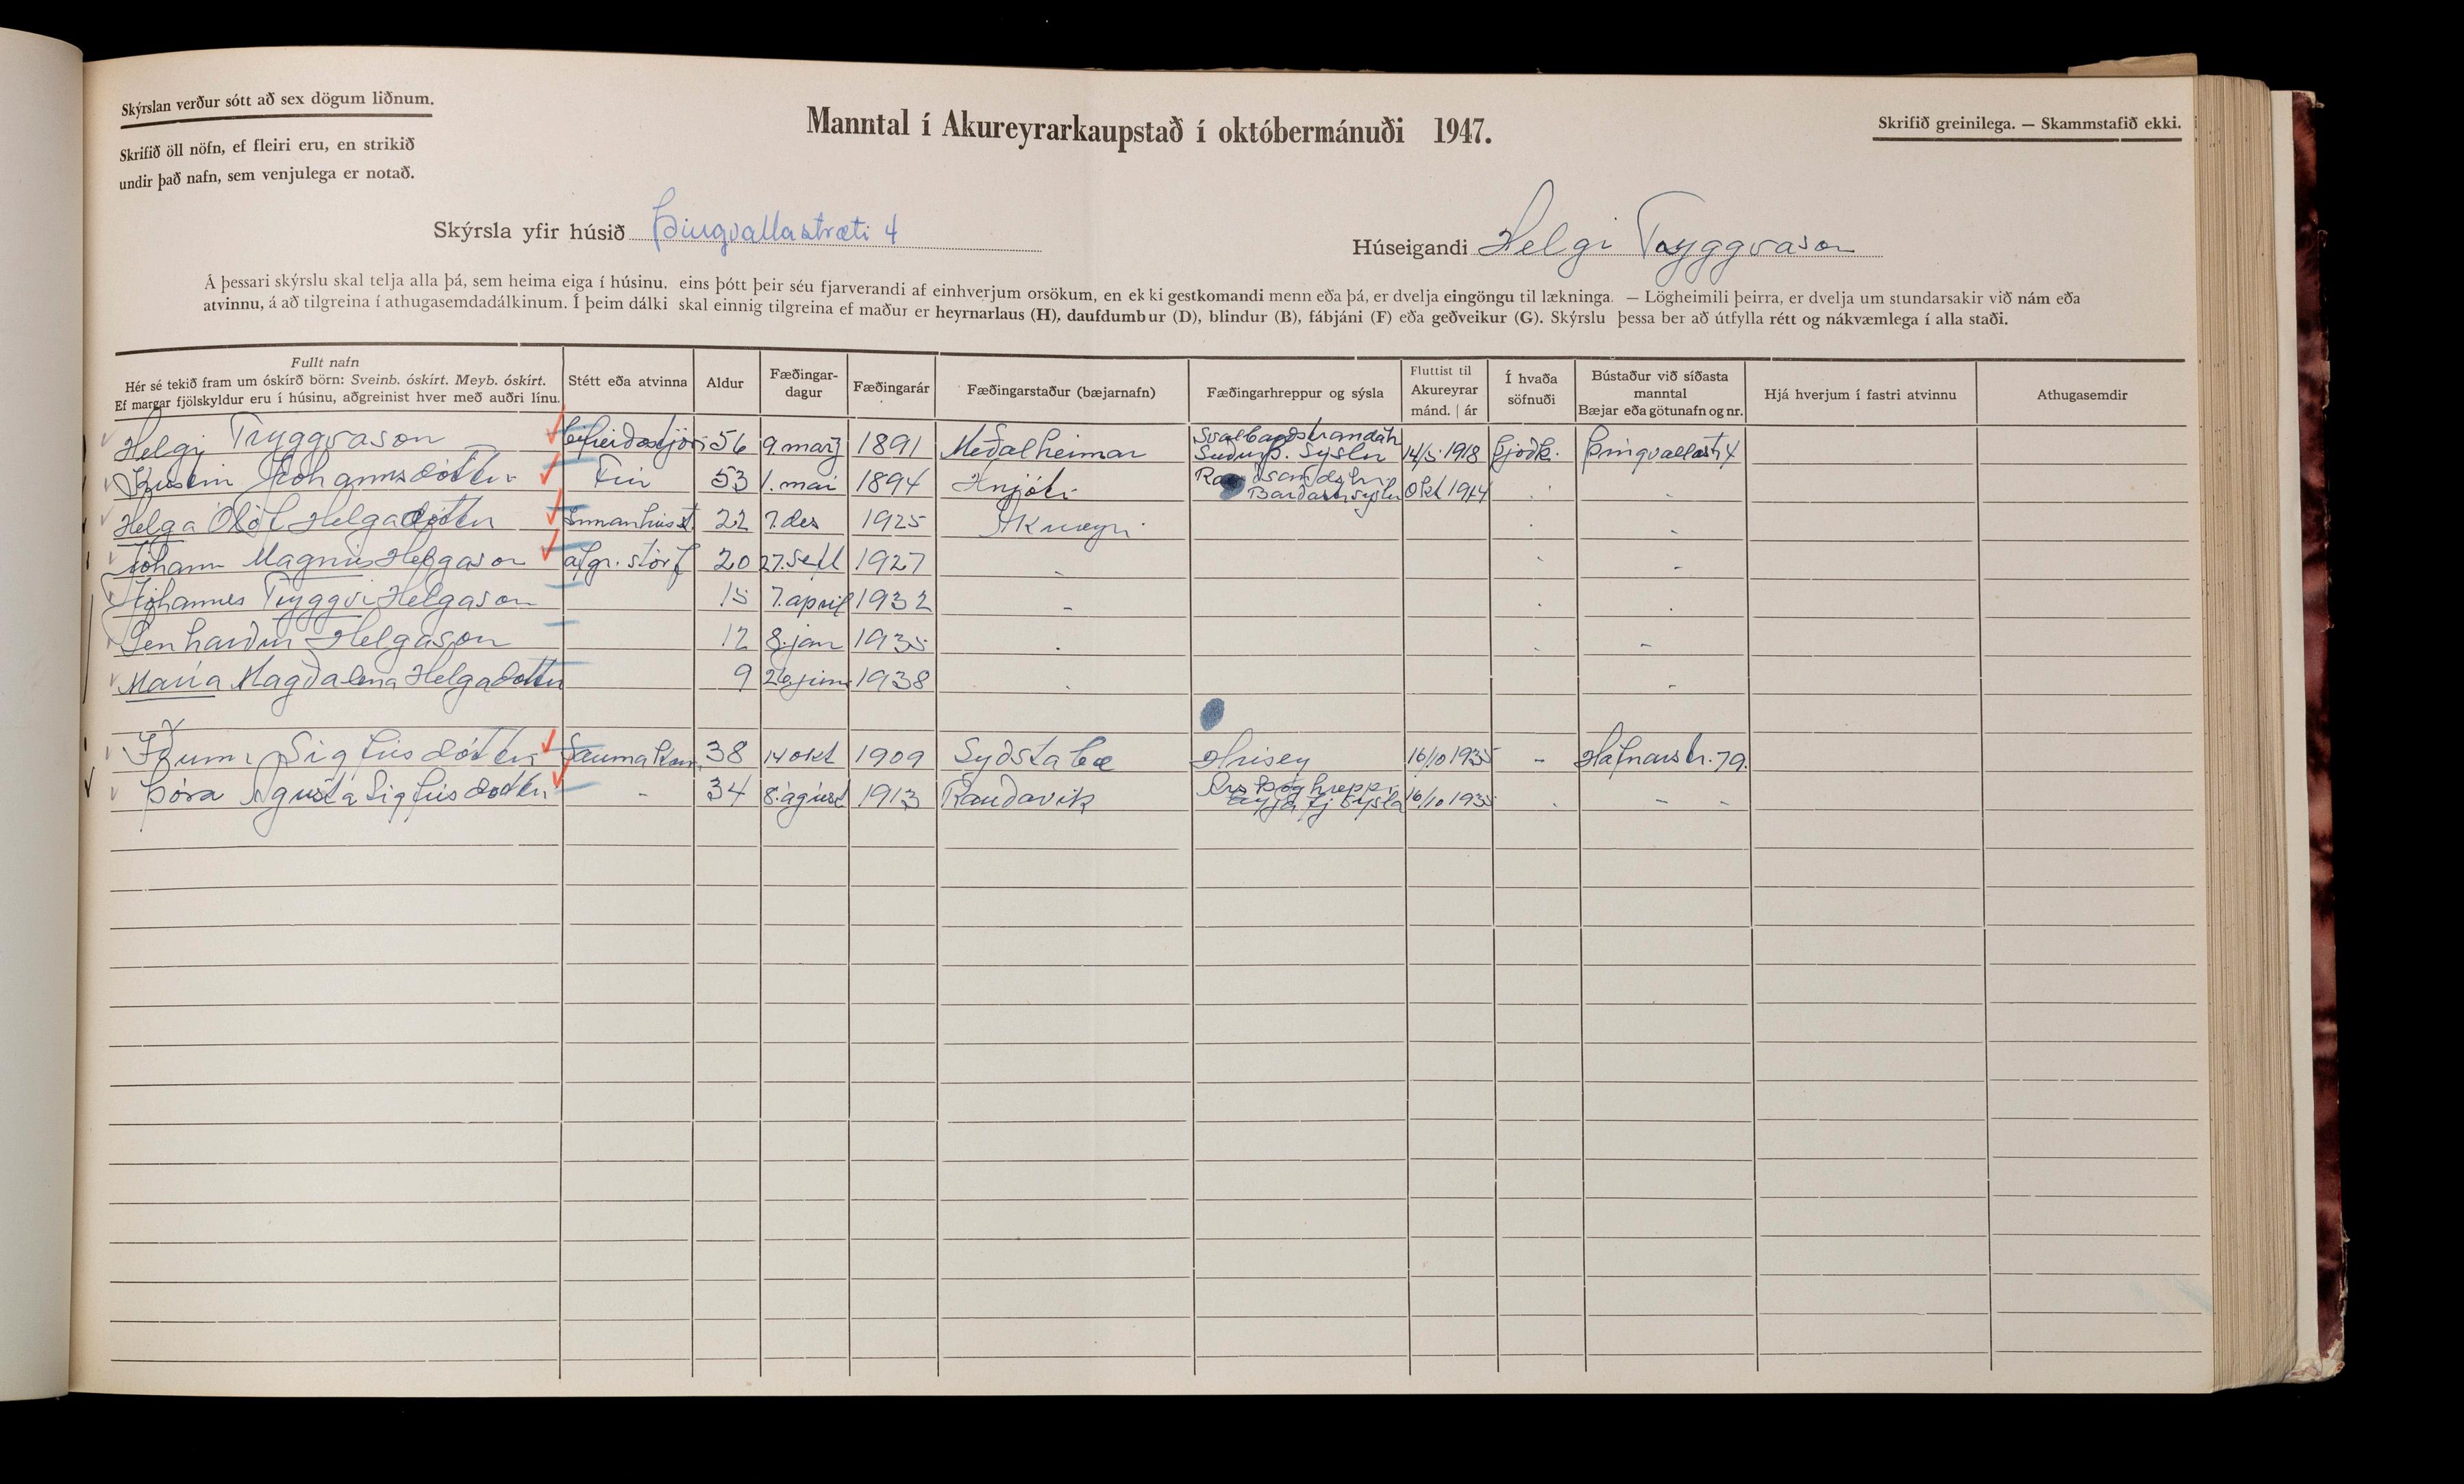 Skýrslan verður sótt að sex dögum liðnum.
Skrifið öll nöfn, ef fleiri eru, en strikið
undir það nafn, sem venjulega er notað.
Manntal í Akureyrarkaupstað í októbermánuði 1947.
Skrifið greinilega. — Skammstafið ekki.
Skýrsla yfir húsið Þingvallastræti 4
Húseigandi Helgi Tryggvason
Á þessari skýrslu skal telja alla þá, sem heima eiga í húsinu, eins þótt þeir séu fjarverandi af einhverjum orsökum, en ekki gestkomandi menn eða þá, er dvelja eingöngu til lækninga. — Lögheimili þeirra, er dvelja um stundarsakir við nám eða
atvinnu, á að tilgreina í athugasemdadálkinum. Í þeim dálki skal einnig tilgreina ef maður er heyrnarlaus (H), daufdumbur (D), blindur (B), fábjáni (F) eða geðveikur (G). Skýrslu þessa ber að útfylla rétt og nákvæmlega í alla staði.
Fullt nafn
Hér sé tekið fram um óskírð börn: Sveinb. óskírt. Meyb. óskírt.
Ef margar fjölskyldur eru í húsinu, aðgreinist hver með auðri línu.
Stétt eða atvinna
Aldur
Fæðingar-
dagur
Fæðingarár
Fæðingarstaður (bæjarnafn)
Fæðingarhreppur og sýsla
Fluttist til
Akureyrar
mánd. | ár
Í hvaða
söfnuði
Bústaður við síðasta
manntal
Bæjar eða götunafn og nr.
Hjá hverjum í fastri atvinnu
Athugasemdir
Helgi Tryggvason 56 9 marz 1891 Meðalheimar Svalbarðstrandah Suðurþ. Sýslu 14/5 1918 Þjoðk. Þingvallastr 4
Kristin Johannsdóttir Frú 53 1. mai 1894 Hnjóti Barðastr sýslu Okt 1914
Helga Ólöf Helgadóttir Innanhússt. 22 7. des 1925 Akureyri
Johann Magnús Helgason afgr. störf 20 27. Sept 1927 -
Jóhannes Tryggvi Helgason 15 7. april 1932 -
Lenharður Helgason 12 8. jan 1935
María Magðalena Helgadóttir 9 26 juni 1938
Iðunn Sigfúsdóttir Saumakon. 38 14 okt 1909 Syðstabæ Hrisey 16/10 1935 - Hafnarstr. 79.
Þóra Agústa Sigfúsdóttir - 34 8. ágúst 1913 Rauðavik Arskóghreppi Eyjafj Sysla 16/10 1935 - -